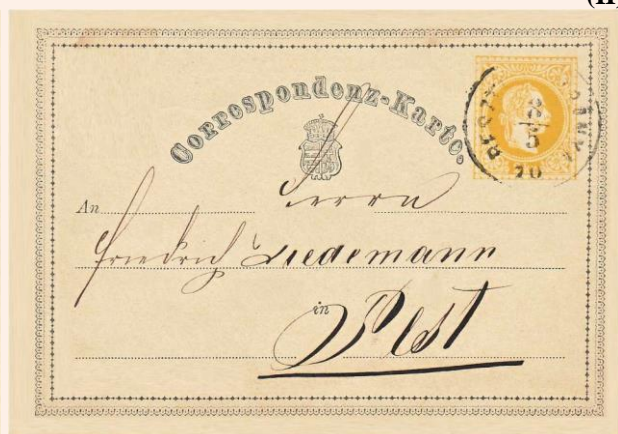 (II
Correspondenz-Karte.
An Herrn
Friedrich Liedemann
in Pest
PEST
8/5
70